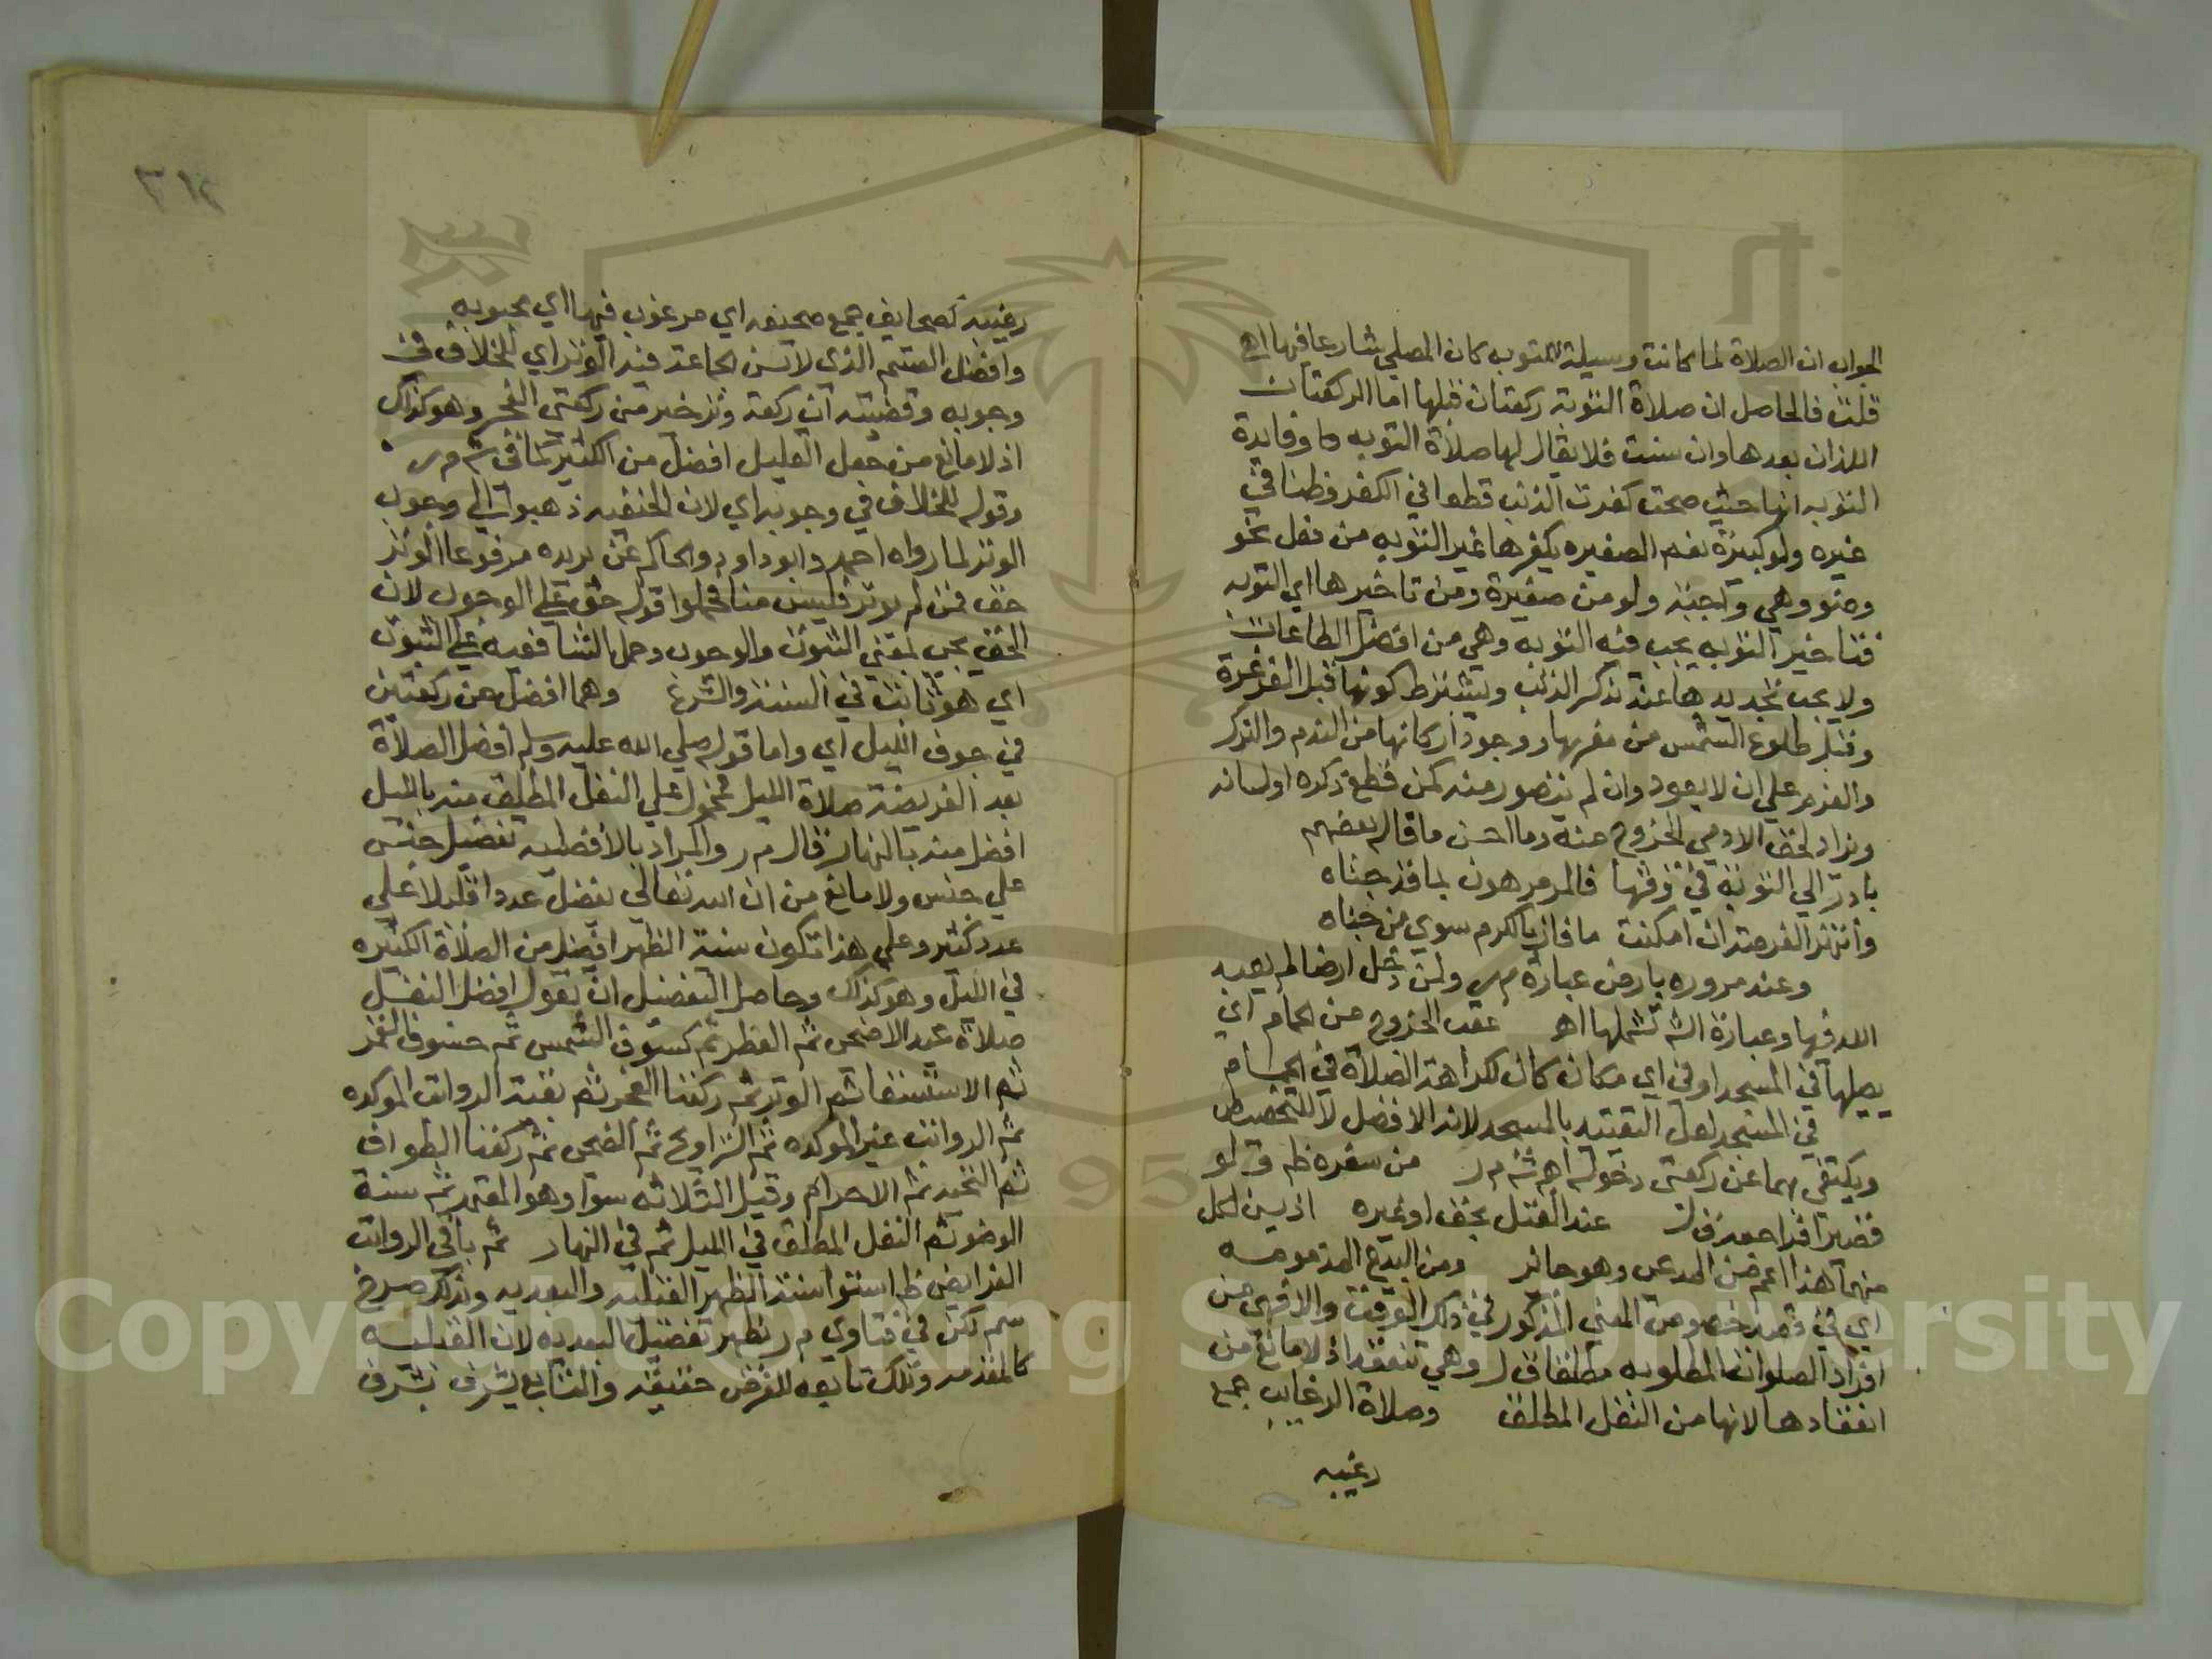 الجواب ان الصلاة لما كانت وسيلة للتوبه كان المصلي شارعا فيها اهـ
قلت فالحاصل ان صلاة التوبة ركعتان قبلها اما الركعتان
اللذان بعدها وان سنت فلا يقال لها صلاة التوبه وفايدة
التوبه انها حيث صحت كفرت الذنب قطعا في الكفر وظنا في
غيره ولو كبيرة نعم الصغيره يكفرها غير التوبه من فعل نحو
وضو وهي واجبة ولو من صغيرة ومن تاخيرها اي التوبه
فتاخير التوبه يجب فيه التوبه وهي من افضل الطاعات
ولا يجب تجديدها عند تذكر الذنب ويشترط كونها قبل الغرغرة
وقبل طلوع الشمس من مغربها ووجود اركانها من الندم والترك
والعزم علي ان لا يعود وان لم يتصور منه كمن قطع ذكره او لسانه
ويزاد لحق الادمي الخروج منه وما احسن ما قال بعضهم
بادر الي التوبة في وقتها فالمرء مرهون بما قد جناه
وانتهز الفرصة ان امكنت ما فاز بالكرم سوي من جناه
وعند مروره بارض عبارة م ر ولمن دخل ارضا لم يعبد
الله فيها وعبارة الش تشملها اهـ عقب الخروج من الحمام اي
يصليها في المسجد او في اي مكان كان لكراهة الصلاة في الحمام
في المسجد لعل التقييد بالمسجد لانه الافضل لا للتخصيص
ويكتفي بهما عن ركعتي دخوله اهـ ش م ر من سفره ظم ولو
قصيرا فراجعه ق ل عند القتل بحق او غيره اذ يسن لكل
منهما هذا اعم من المدعي وهو جائز ومن البدع المذمومه
اي في قصد خصوص المعني المذكور في ذلك الوقت والا فهي من
افراد الصلوات المطلوبه مطلقا ق ل وهي تنعقد اذ لا مانع من
انعقادها لانها من النفل المطلق وصلاة الرغايب جمع
رغيبه
٣١٢
رغيبة كصحايف جمع صحيفه اي مرغوب فيها اي محبوبه
وافضل القسم الذي لا تسن الجماعة فيه الوتر اي للخلاف في
وجوبه وقضيته ان ركعة وتر خير من ركعتي الفجر وهو كذلك
اذ لا مانع من جعل القليل افضل من الكثير كما في ش م ر
وقوله للخلاف في وجوبه اي لان الحنفيه ذهبوا الي وجوب
الوتر لما رواه احمد وابو داود والحاكم عن بريده مرفوعا الوتر
حق فمن لم يوتر فليس منا فحملوا قوله حق علي الوجوب لان
الحق يجي بمعني الثبوت والوجوب وحمل الشافعيه علي الثبوت
اي هو ثابت في السنة والشرع وهما افضل من ركعتين
في جوف الليل اي واما قوله صلي الله عليه وسلم افضل الصلاة
بعد الفريضة صلاة الليل فمحمول علي النفل المطلق منه بالليل
افضل منه بالنهار قال م ر والمراد بالافضليه تفضيل جنس
علي جنس ولا مانع من ان الله تعالي يفضل عددا قليلا علي
عدد كثير وعلي هذا تكون سنة الظهر افضل من الصلاة الكثيره
في الليل وهو كذلك وحاصل التفضيل ان تقول افضل النفل
صلاة عيد الاضحى ثم الفطر ثم كسوف الشمس ثم خسوف القمر
ثم الاستسقا ثم الوتر ثم ركعتا الفجر ثم بقية الرواتب الموكده
ثم الرواتب غير الموكده ثم التراويح ثم الضحى ثم ركعتا الطواف
ثم التحيه ثم الاحرام وقيل الثلاثه سوا وهو المعتمد ثم سنة
الوضو ثم النفل المطلق في الليل ثم في النهار ثم باقي الرواتب
الفرايض ظ استوا سنة الظهر القبليه والبعديه وبذلك صرح
سم لكن في فتاوي م ر يظهر تفضيل البعديه لان القبليه
كالمقدمه وتلك تابعه للفرض حقيقة والتابع يشرف بشرف